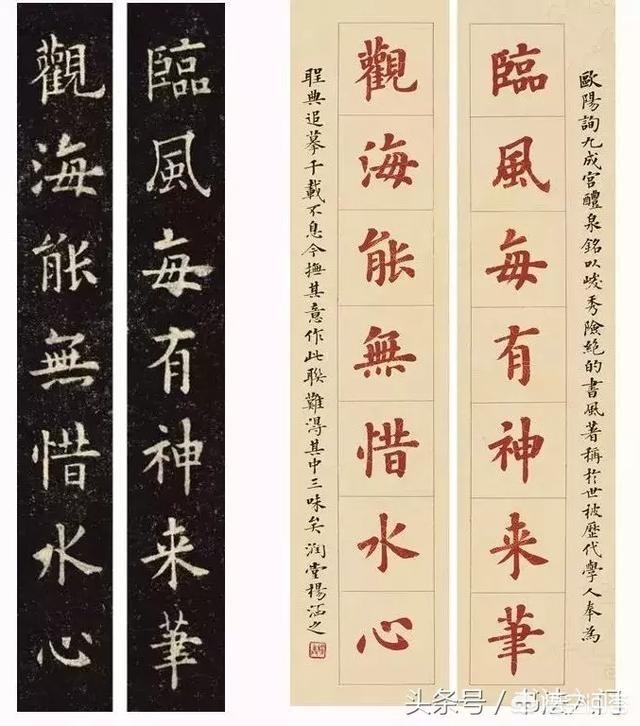 臨風每有神来筆
觀海能無惜水心
歐陽詢九成宮醴泉銘以峻秀險絕的書風著稱於世被歷代學人奉為
臨風每有神来筆
觀海能無惜水心
聖典追摹千載不息今撫其意作此聯難得其中三味矣 潤堂楊涵之
头条号／书法之门